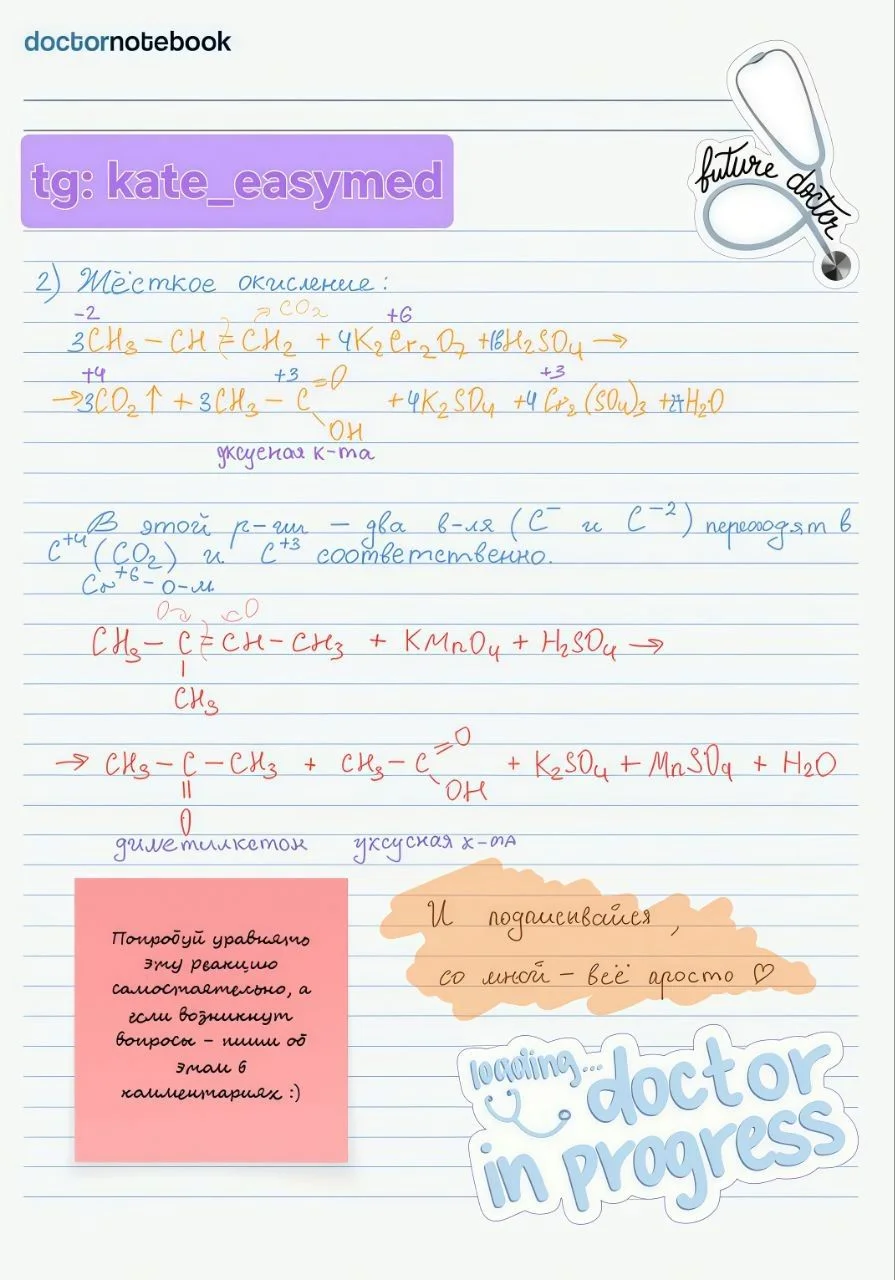 doctornotebook
tg: kate_easymed
future doctor
2) Жёсткое окисление:
-2 → CO₂ +6
3CH₃ – CH = CH₂ + 4K₂Cr₂O₇ + 16H₂SO₄ →
+4 +3 +3
→ 3CO₂↑ + 3CH₃ – C =O + 4K₂SO₄ + 4Cr₂(SO₄)₃ + H₂O
OH
уксусная к-та
В этой р-ии – два в-ля (C⁻ и C⁻²) переходят в
C⁺⁴ (CO₂) и C⁺³ соответственно.
Cr⁺⁶ – о-ль
O O
CH₃ – C = CH – CH₃ + KMnO₄ + H₂SO₄ →
CH₃
→ CH₃ – C – CH₃ + CH₃ – C =O + K₂SO₄ + MnSO₄ + H₂O
O OH
диметилкетон уксусная к-та
Попробуй уравнять
эту реакцию
самостоятельно, а
если возникнут
вопросы – пиши об
этом в
комментариях :)
И подписывайся,
со мной – всё просто ♡
loading... doctor
in progress